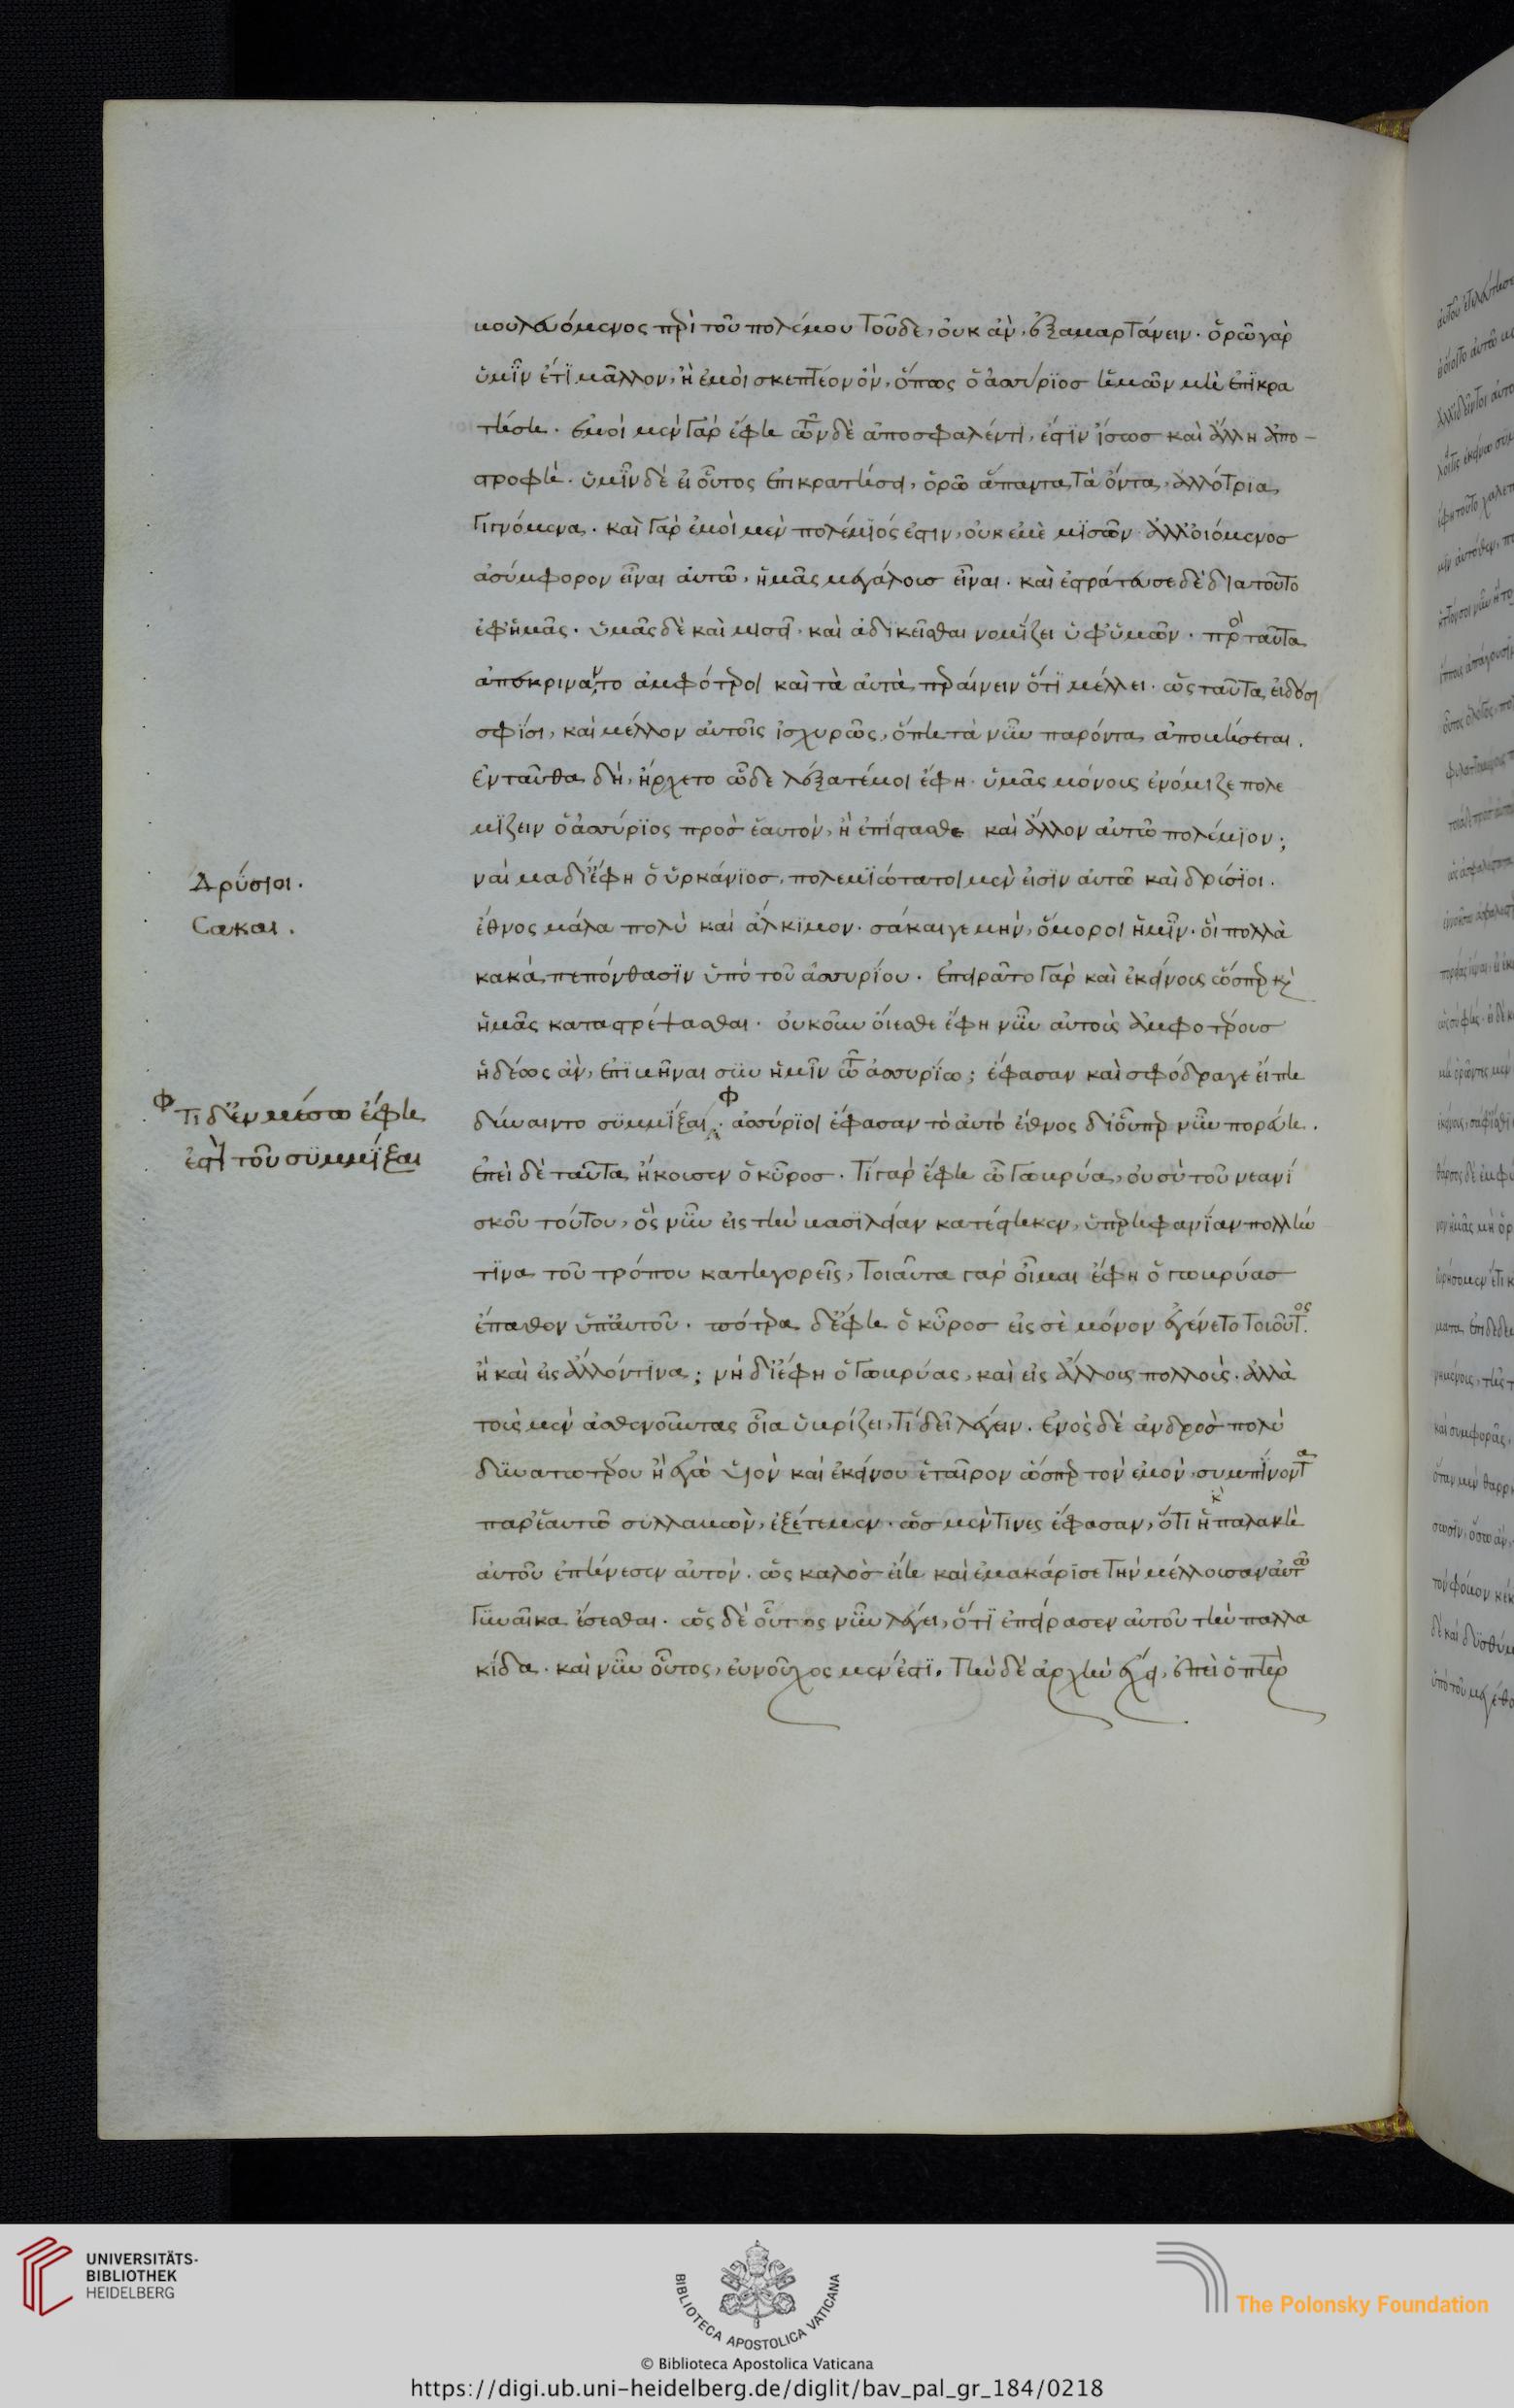 βουλευόμενος περὶ τοῦ πολέμου τοῦδε, οὐκ ἂν ἐξαμαρτάνειν. ὁρῶ γὰρ
ὑμῖν ἔτι μᾶλλον, ἢ ἐμοὶ σκεπτέον ὂν, ὅπως ὁ ἀσσύριος ἡμῶν μὴ ἐπικρα
τήση. ἐμοί μεν γαρ ἔφη ὧνδὲ ἀποσφαλέντι, ἐστὶν ἴσως καὶ ἄλλη ἀπο-
στροφὴ. ὑμῖν δὲ εἰ οὗτος ἐπικρατήσει, ὁρῶ ἅπαντα τὰ ὄντα ἀλλότρια
γιγνόμενα. καὶ γὰρ ἐμοὶ μὲν πολέμιός ἐστιν, οὐκ ἐμὲ μισῶν ἀλλ' οἰόμενος
ἀσύμφορον εἶναι αὐτῶ, ἡμᾶς μεγάλους εἶναι. καὶ ἐστράτευσε δὲ διατοῦτο
ἐφ' ἡμᾶς. ὑμᾶς δὲ καὶ μισεῖ. καὶ ἀδικεῖσθαι νομίζει ὑφ' ὑμῶν. πρὸς ταῦτα
ἀπεκρίναντο ἀμφότεροι καὶ τὰ αὐτὰ περαίνειν ὅτι μέλλει. ὡς ταῦτα εἰδόσι
σφίσι, καὶ μέλλον αὐτοῖς ἰσχυρῶς, ὅπη τὰ νῦν παρόντα ἀποβήσεται.
Ἐνταῦθα δὴ, ἤρχετο ὧδε λέξατέμοι ἔφη. ὑμᾶς μόνους ἐνόμιζε πολε
μίζειν ὁ ἀσσύριος προς ἑαυτὸν, ἢ ἐπίστασθε καὶ ἄλλον αὐτῶ πολέμιον;
Δρύσιοι.
ναὶ μα δί' ἔφη ὁ ὑρκάνιος. πολεμιώτατοι μὲν εἰσὶν αὐτῶ καὶ δρύσιοι.
Σακαι.
ἔθνος μάλα πολὺ καὶ ἄλκιμον. σάκαι γε μὴν, ὅμοροι ἡμῖν. οἳ πολλὰ
κακὰ πεπόνθασιν ὑπὸ τοῦ ἀσσυρίου. ἐπειρᾶτο γὰρ καὶ ἐκείνους ὥσπερ καὶ
ἡμᾶς καταστρέψασθαι. οὐκοῦν οἴεσθε ἔφη νῦν αὐτοὺς ἀμφοτέρους
ἡδέως ἂν, ἐπιβῆναι σὺν ἡμῖν τῶ ἀσσυρίω; ἔφασαν καὶ σφόδρα γε εἴ πη
Τι δ' ἐν μέσω ἔφη
ἐστὶ τοῦ συμμῖξαι
δύναιντο συμμῖξαι. ἀσσύριοι ἔφασαν τὸ αὐτὸ ἔθνος δι' οὗπερ νῦν πορεύη.
ἐπεὶ δὲ ταῦτα ἤκουσεν ὁ κῦρος. τί γὰρ ἔφη ὦ γωβρύα, οὐ σὺ τοῦ νεανί
σκου τούτου, ὃς νῦν εἰς τὴν βασιλείαν κατέστηκεν, ὑπερηφανίαν πολλήν
τινα τοῦ τρόπου κατηγορεῖς, τοιαῦτα γαρ οἶμαι ἔφη ὁ γωβρύας
ἔπαθον ὑπ' αὐτοῦ. πότερα δ' ἔφη ὁ κῦρος εἰς σὲ μόνον ἐγένετο τοιοῦτος.
ἢ καὶ εἰς ἄλλόν τινα; νὴ δί' ἔφη ὁ γωβρύας, καὶ εἰς ἄλλους πολλούς. ἀλλὰ
τοὺς μὲν ἀσθενοῦντας οἷα ὑβρίζει, τί δεῖ λέγειν. Ἑνὸς δὲ ἀνδρὸς πολὺ
δυνατωτέρου ἢ ἐγὼ υἱὸν καὶ ἐκείνου ἑταῖρον ὥσπερ τὸν ἐμὸν, συμπίνοντα
παρ' ἑαυτῶ συλλαβὼν, ἐξέτεμεν. ὡς μέν τινες ἔφασαν, ὅτι ἡ παλακὴ
αὐτοῦ ἐπήνεσεν αὐτὸν. ὡς καλὸς εἴη καὶ ἐμακάρισε τὴν μέλλουσαν αὐτῶ
γυναῖκα ἔσεσθαι. ὡς δὲ οὗτος νῦν λέγει, ὅτι ἐπείρασεν αὐτοῦ τὴν παλλα
κίδα. καὶ νῦν οὗτος, εὐνοῦχος μὲν ἐστι. τὴν δὲ ἀρχὴν ἔχει, ἐπεὶ ὁ πατὴρ
UNIVERSITÄTS-
BIBLIOTHEK
HEIDELBERG
BIBLIOTECA APOSTOLICA VATICANA
The Polonsky Foundation
© Biblioteca Apostolica Vaticana
https://digi.ub.uni-heidelberg.de/diglit/bav_pal_gr_184/0218